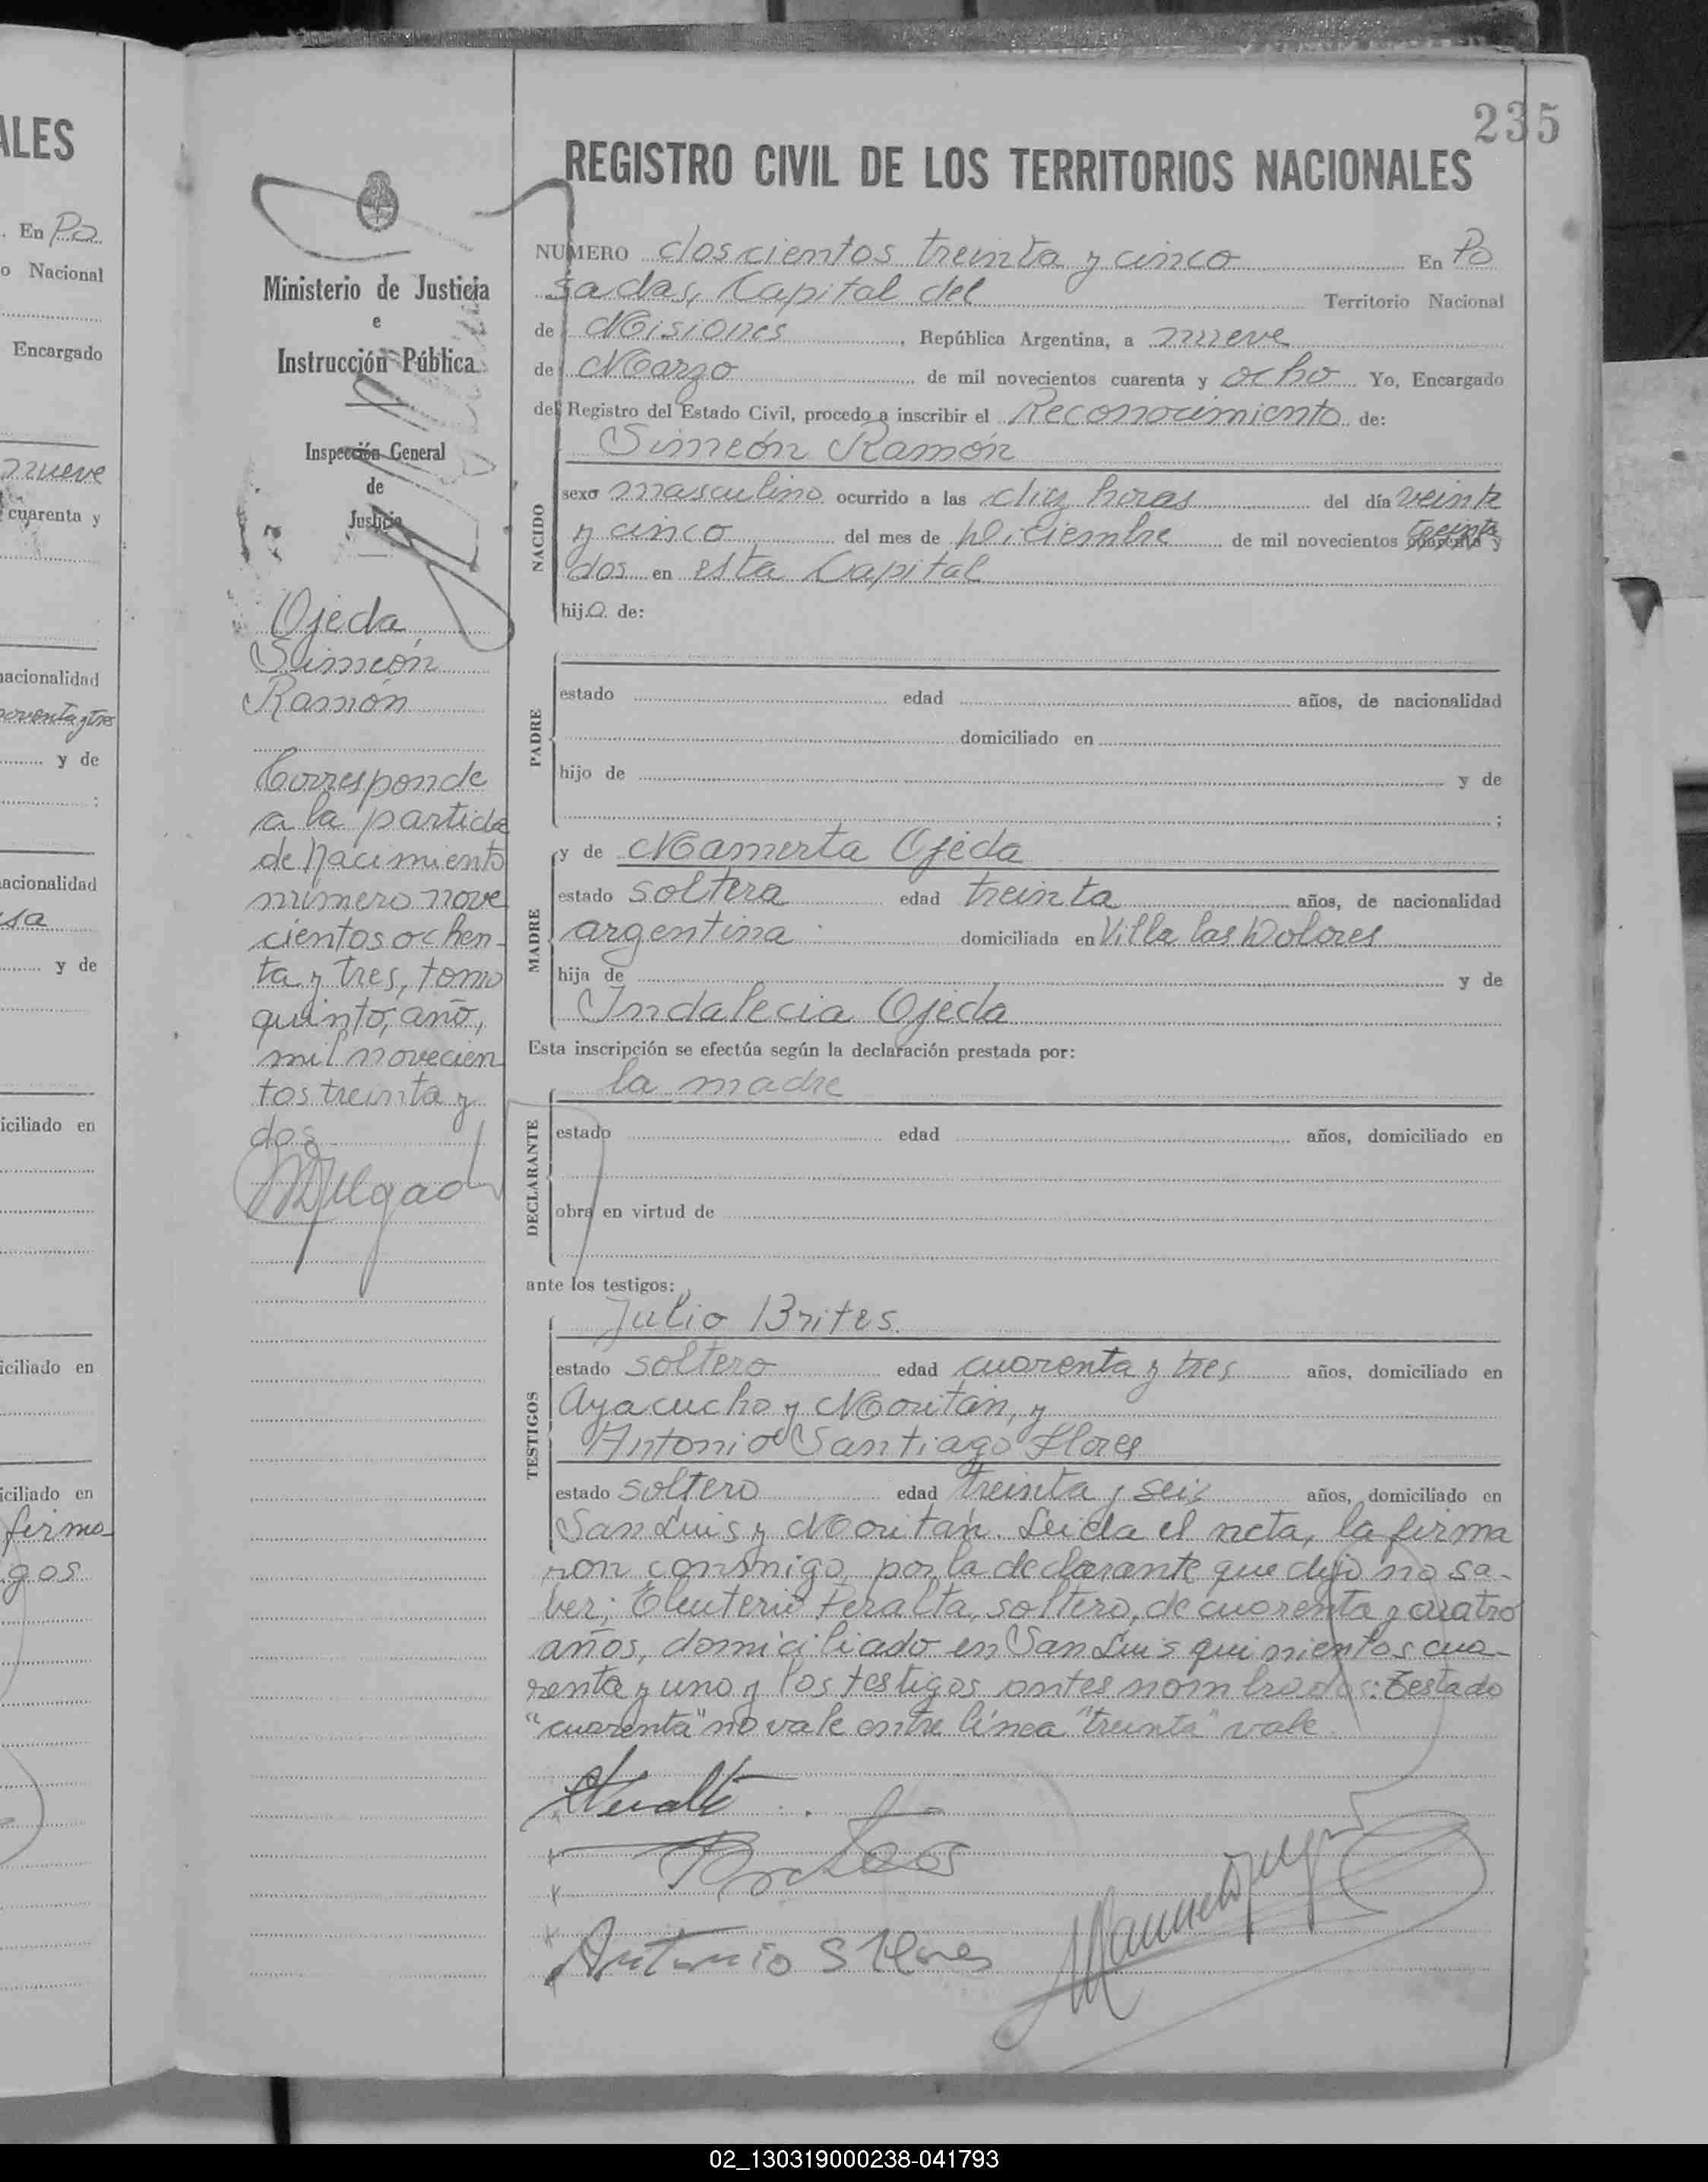 ALES
En Po
o Nacional
Encargado
nueve
cuarenta y
nacionalidad
noventa y tres
y de
:
acionalidad
sa
y de
iciliado en
iciliado en
iciliado en
firma
gos
Ministerio de Justicia
e
Instrucción Pública
Inspección General
de
Justicia
Ojeda,
Simeón
Ramón
Corresponde
a la partida
de Nacimiento
número nove
cientos ochen-
ta y tres, tomo
quinto, año,
mil novecien
tos treinta y
dos
235
REGISTRO CIVIL DE LOS TERRITORIOS NACIONALES
NUMERO doscientos treinta y cinco En Po
sadas, Capital del Territorio Nacional
de Misiones, República Argentina, a nueve
de Marzo de mil novecientos cuarenta y ocho Yo, Encargado
del Registro del Estado Civil, procedo a inscribir el Reconocimiento de:
Simeón Ramón
NACIDO
sexo masculino ocurrido a las diez horas del día veinte
y cinco del mes de Diciembre de mil novecientos treinta cuarenta y
dos en esta Capital
hijo de:
PADRE
estado edad años, de nacionalidad
domiciliado en
hijo de y de
;
MADRE
y de Mamerta Ojeda
estado soltera edad treinta años, de nacionalidad
argentina domiciliada en Villa las Dolores
hija de y de
Indalecia Ojeda
Esta inscripción se efectúa según la declaración prestada por:
la madre
DECLARANTE
estado edad años, domiciliado en
obra en virtud de
ante los testigos:
TESTIGOS
Julio Brites
estado soltero edad cuarenta y tres años, domiciliado en
Ayacucho y Moritán, y
Antonio Santiago Flores
estado soltero edad treinta y seis años, domiciliado en
San Luis y Moritán. Leida el acta, la firma
ron conmigo, por la declarante que dijo no sa-
ber; Eleuterio Peralta, soltero, de cuarenta y cuatro
años, domiciliado en San Luis quinientos cua-
renta y uno y los testigos antes nombrados: testado
"cuarenta" no vale entre línea "treinta" vale
Antonio S Flores
02_130319000238-041793